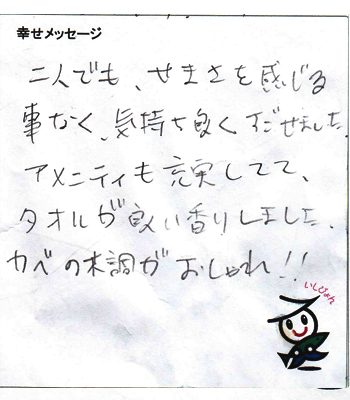 幸せメッセージ
二人でも、せまさを感じる
事なく、気持ち良くすごせました。
アメニティも充実してて、
タオルが良い香りしました。
カベの木調がおしゃれ!!
いしぴょん